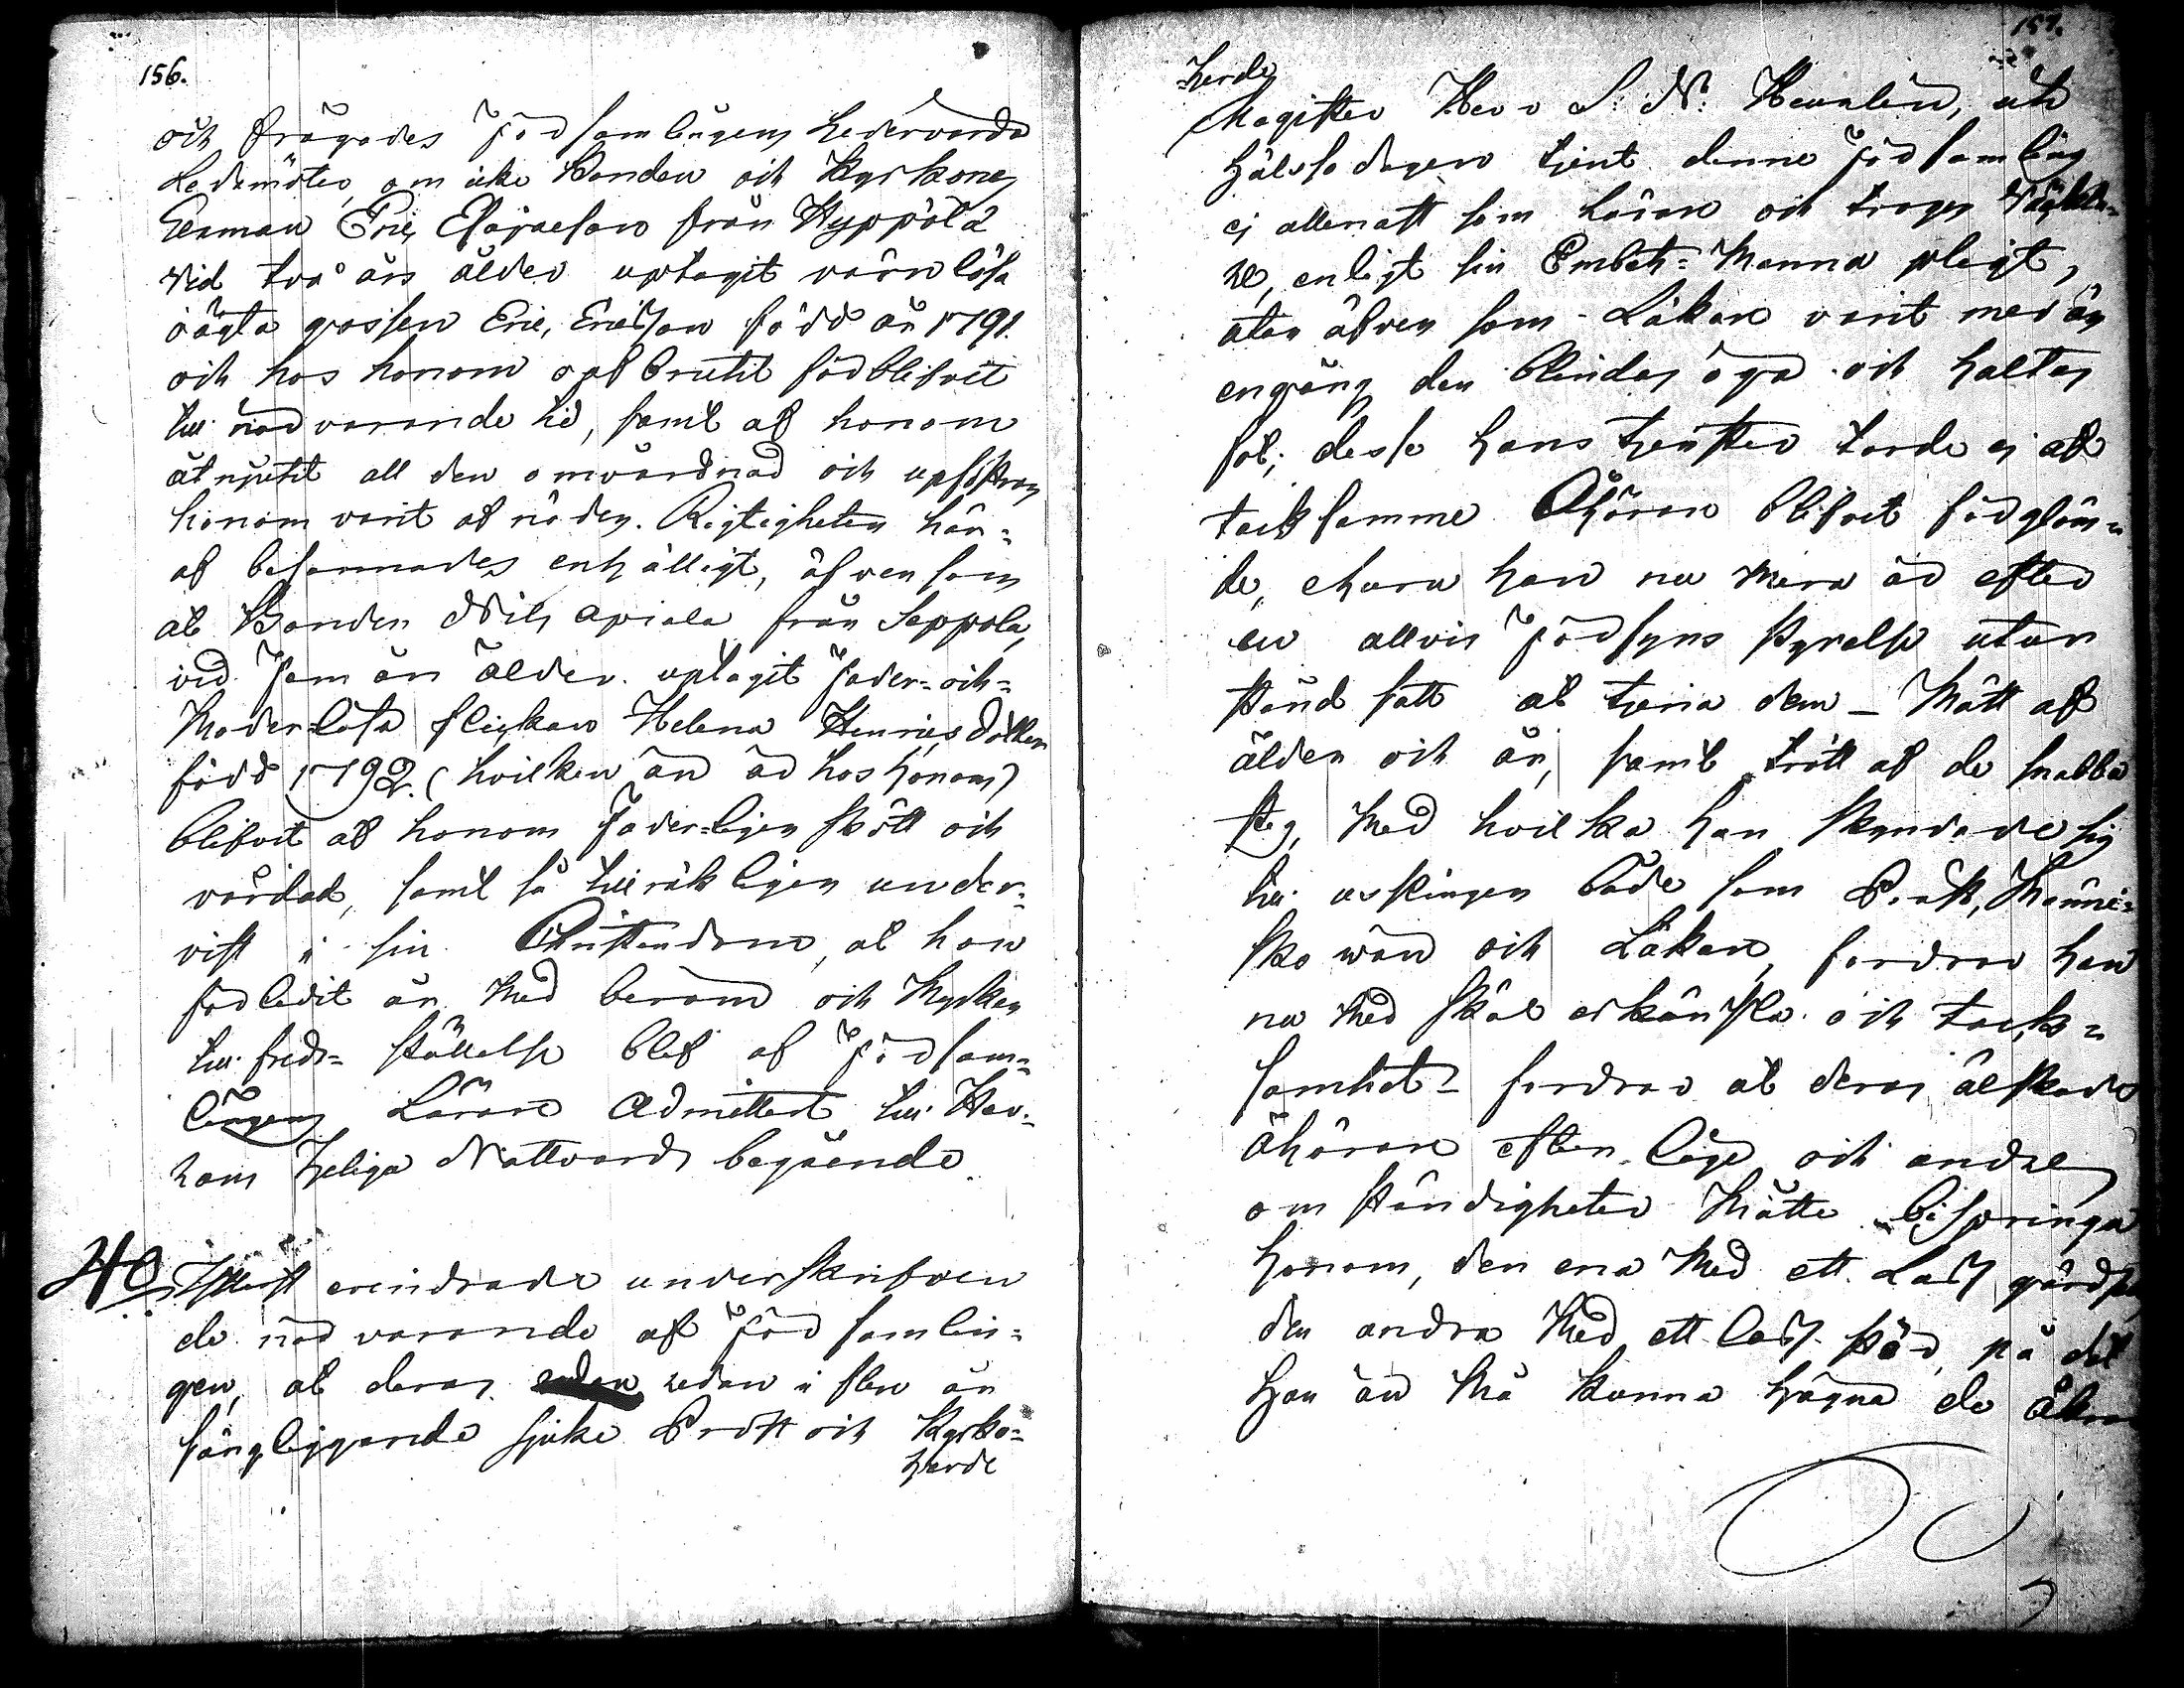 156.
och frågades Församlingens hedervärda
Ledamöter, om icke Bonden och Kyrkones
Sexman Eric Esaiæson från Hyppölä
vid två års ålder uptagit värnlösa
oägta gossen Eric Ericsson född år 1791.
och hos honom oafbrutit förblifvit
till närvarande tid, samt af honom
åtnjutit all den omvårdnad och upfostran
honom varit af nöden. Rigtigheten här=
af besannades enhälligt, äfven som
at Bonden Nils Apiala från Seppola,
vid fem års ålder uptagit Fader= och=
Moderlösa flickan Helena Henricsdotter
född 1792. (hvilken än är hos honom)
blifvit af honom Faderligen skött och
vårdad, samt så tillräkligen under=
vist i sin Christendom, at hon
förledit år med beröm och mycken
till freds= ställelse blef af Försam=
lingens Lärare Admitterat till Her=
rans Heliga Nattvards begående.
4:o Ytterst erindrade underskrifven
de närvarande af Församlin=
gen, at deras redan i flere år
sängliggande sjuke Prost och Kyrko=
herde
157.
herde
Magister Herr S: N: , uti
hälsodagar tjent denne Församling
ej allenast som Lärare och trogen Väktare
, enligt sin Embets= Manna pligt,
utan äfven som Läkare varit mer än
engång den blindas öga och haltas
fot; desse hans tjenster torde ej af
tacksamme Åhörare blifvit förgläm=
de, ehuru han nu mera är efter
en allvis Försyns styrelse utan
stånd satt at tjena dem _ Mätt af
ålder och år, samt trött af de snabba
steg, med hvilka han skyndade sig
till uslingen både som Prest, Menni=
sko wän och Läkare, fordrar han
nu med skäl erkänsla och tack=
samhet= fordrar at deras älskade
åhörare efter läge och andre
omständigheter måtte bispringa
honom, den ena med ett Lass gärdsel,
den andra med ett lass stör, på det
han än må kunna hägna de åkrar